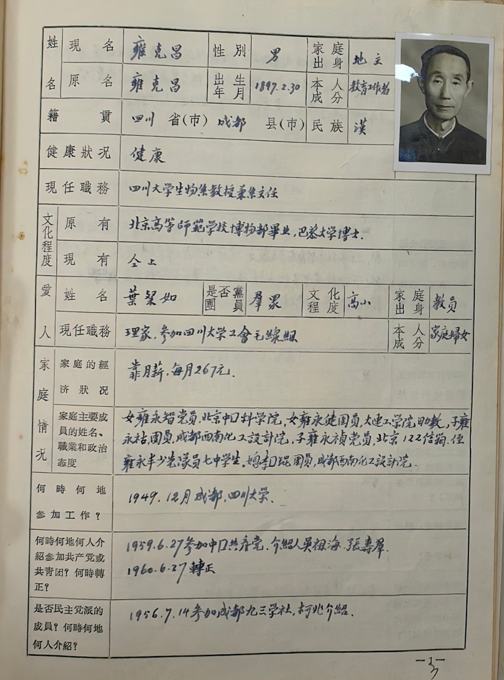 姓名 現名 雍克昌 性別 男 家庭出身 地主
原名 雍克昌 出生年月 1897.2.30 本人成分 教育工作者
籍貫 四川省(市)成都县(市) 民族 漢
健康狀况 健康
現任職務 四川大学生物系教授兼系主任
文化程度 原有 北京高等师範学校博物部畢业,巴黎大学博士.
現有 仝上
愛人 姓名 葉琹如 是否黨員團 羣眾 文化程度 高小 家庭出身 教员
現任職務 理家,参加四川大学工會毛線組 本人成分 家庭婦女
家庭情况 家庭的經濟狀况 靠月薪,每月267元.
家庭主要成員的姓名、職業和政治态度 女雍永智党员,北京中口科学院,女雍永健团员,大连工学院助教,子雍
永祜团员,成都西南化工設計院,子雍永禎党员,北京122信箱.侄
雍永丰少先隊员七中学生,媳李口琨团员,成都西南化工設計院.
何時何地参加工作? 1949.12月成都.四川大学.
何時何地何人介紹参加共产党或共青团?何時轉正? 1959.6.27参加中口共产党.介紹人吴祖海.張壽羣.
1960.6.27轉正
是否民主党派的成員?何時何地何人介紹? 1956.7.14参加成都九三学社,柯北介紹.